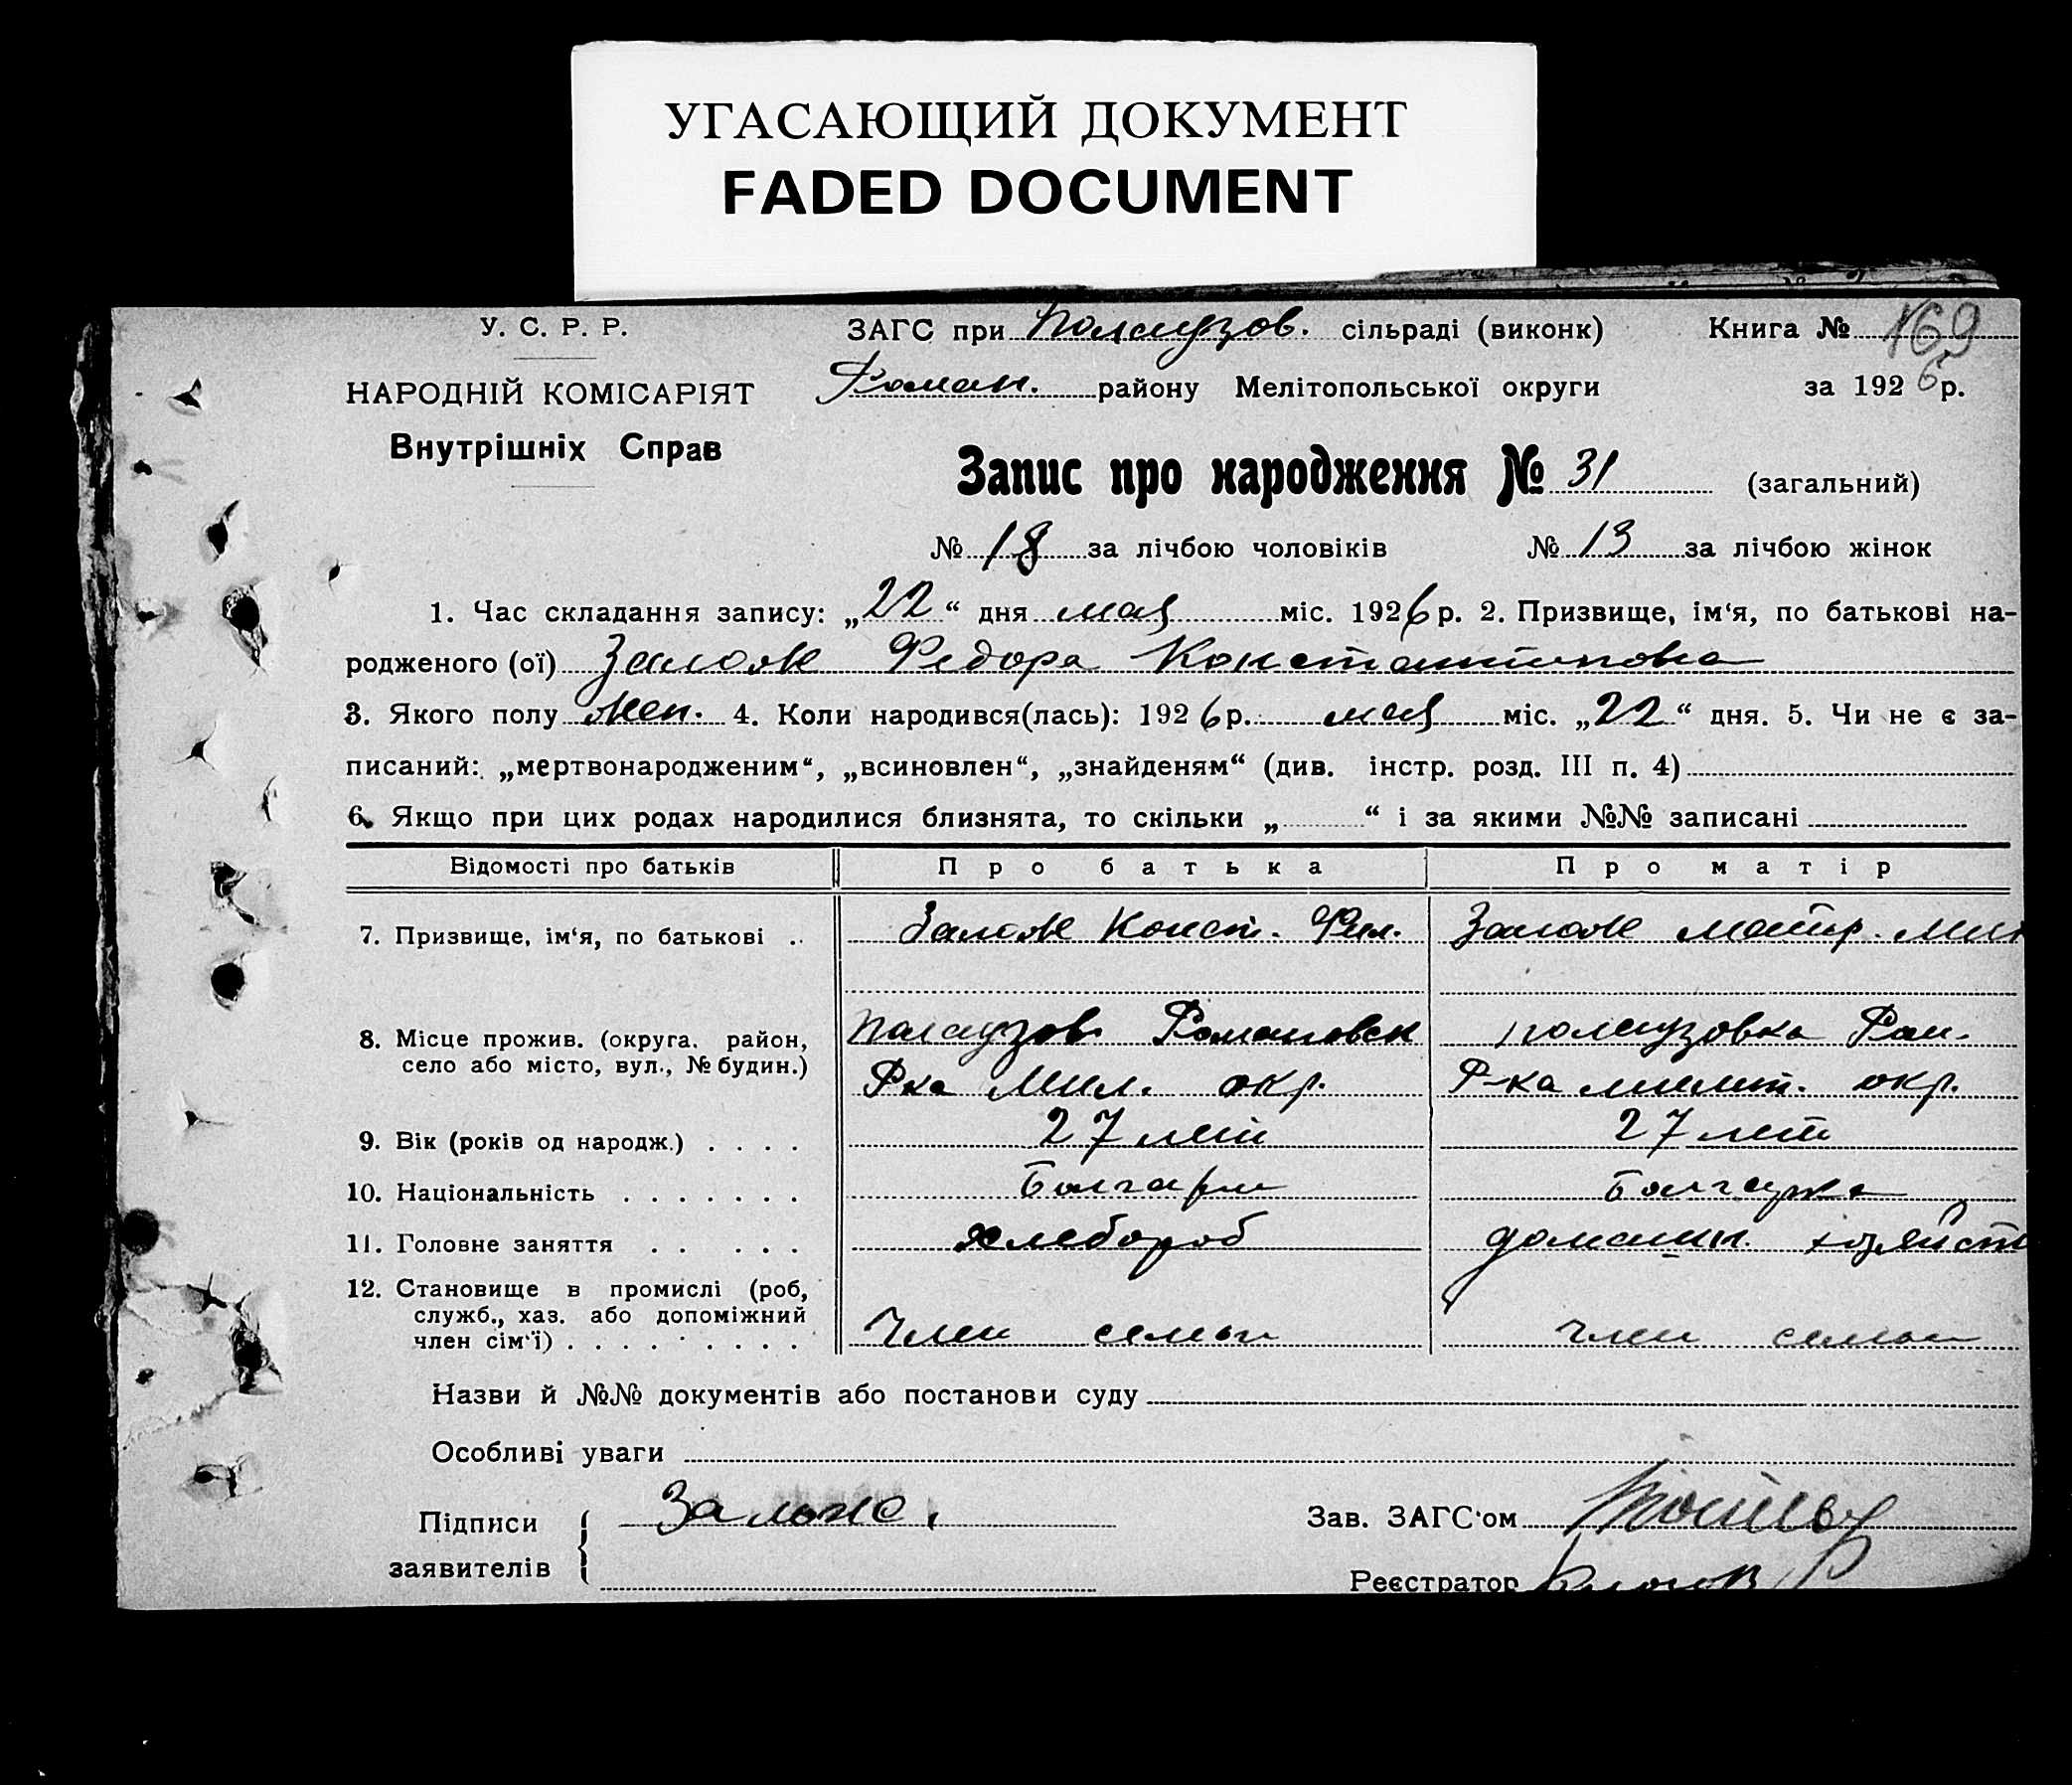 УГАСАЮЩИЙ ДОКУМЕНТ
FADED DOCUMENT
У. С. Р. Р.
ЗАГС при Палаузов. сільраді (виконк) Книга № 169
НАРОДНІЙ КОМІСАРІЯТ
Роман. району Мелітопольської округи за 1926 р.
Внутрішніх Справ
Запис про народження № 31 (загальний)
№ 18 за лічбою чоловіків № 13 за лічбою жінок
1. Час складання запису: „22“ дня мая міс. 1926 р. 2. Призвище, ім‘я, по батькові на-
родженого (ої) Федора Константинова
3. Якого полу 4. Коли народився(лась): 1926 р. мая міс. „22“ дня. 5. Чи не є за-
писаний: „мертвонародженим“, „всиновлен“, „знайденям“ (див. інстр. розд. III п. 4)
6. Якщо при цих родах народилися близнята, то скільки „ “ і за якими №№ записані
Відомості про батьків Про батька Про матір
7. Призвище, ім‘я, по батькові .. Конст. Фил.
8. Місце прожив. (округа, район,
село або місто, вул., № будин.)
Палаузов Романовск Палаузовка Ром.
Р-ка Мел. окр. Р-ка мелит. окр.
9. Вік (років од народж.) . . . . 27 лет 27 лет
10. Національність . . . . . . . Болгарин Болгарка
11. Головне заняття . . . . . хлебороб домашн. хозяйств
12. Становище в промислі (роб,
служб., хаз. або допоміжний
член сім‘ї) . . . . . . . . Член семьи член семьи
Назви й №№ документів або постанови суду
Особливі уваги
Підписи
заявителів
Зав. ЗАГС‘ом
Реєстратор